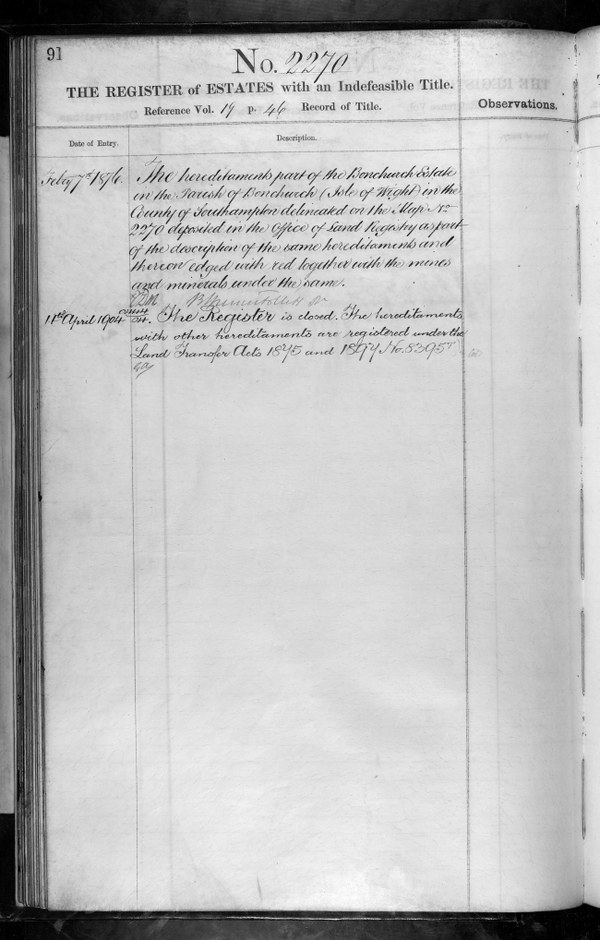 91
No. 2270
THE REGISTER of ESTATES with an Indefeasible Title.
Reference Vol. 19 p. 46 Record of Title.
Observations.
Date of Entry.
Description.
Feby 7th 1876.
The hereditaments part of the Bonchurch Estate
in the Parish of Bonchurch (Isle of Wight) in the
County of Southampton delineated on the Map No
2270 deposited in the Office of Land Registry as part
of the description of the same hereditaments and
thereon edged with red together with the mines
and minerals under the same.
11th April 1904
The Register is closed. The hereditaments
with other hereditaments are registered under the
Land Transfer Acts 1875 and 1897 No. 83957